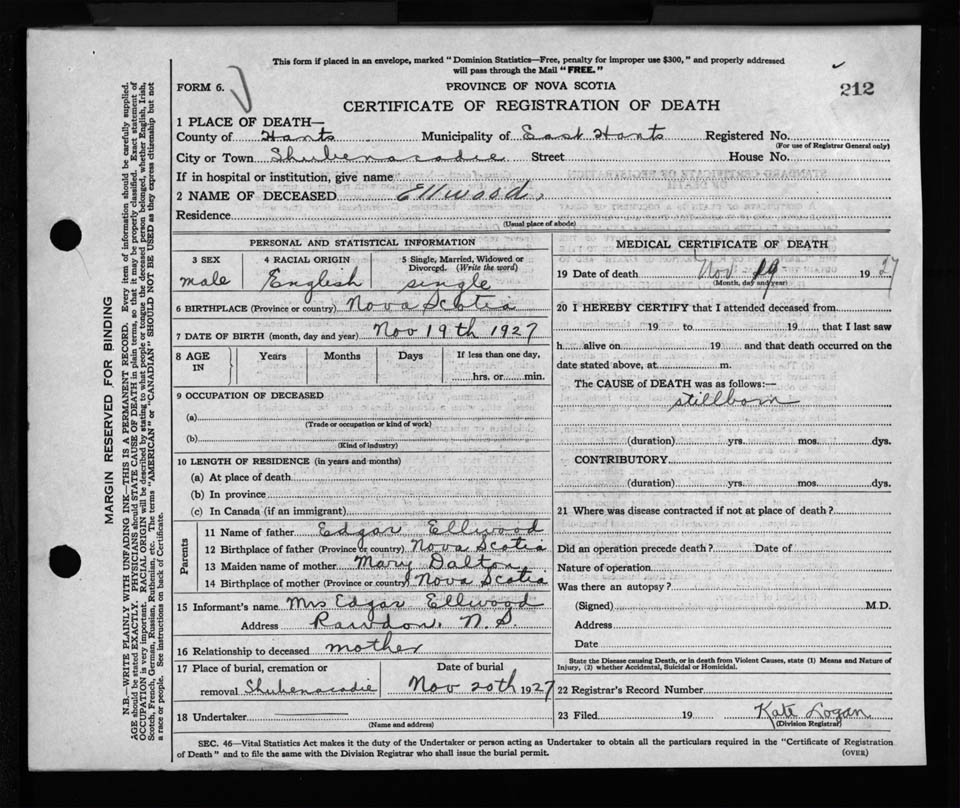 This form if placed in an envelope, marked "Dominion Statistics—Free, penalty for improper use $300," and properly addressed
will pass through the Mail "FREE."
FORM 6.
PROVINCE OF NOVA SCOTIA
212
CERTIFICATE OF REGISTRATION OF DEATH
1 PLACE OF DEATH—
County of Hants Municipality of East Hants Registered No.
(For use of Registrar General only)
City or Town Shubenacadie Street House No.
If in hospital or institution, give name
2 NAME OF DECEASED Ellwood,
Residence
(Usual place of abode)
PERSONAL AND STATISTICAL INFORMATION
3 SEX 4 RACIAL ORIGIN 5 Single, Married, Widowed or
Divorced. (Write the word)
male English single
6 BIRTHPLACE (Province or country) Nova Scotia
7 DATE OF BIRTH (month, day and year) Nov 19th 1927
8 AGE IN Years Months Days If less than one day,
hrs. or min.
9 OCCUPATION OF DECEASED
(a)
(Trade or occupation or kind of work)
(b)
(Kind of industry)
10 LENGTH OF RESIDENCE (in years and months)
(a) At place of death
(b) In province
(c) In Canada (if an immigrant)
Parents
11 Name of father Edgar Ellwood
12 Birthplace of father (Province or country) Nova Scotia
13 Maiden name of mother Mary Dalton
14 Birthplace of mother (Province or country) Nova Scotia
15 Informant's name Mrs Edgar Ellwood
Address Rawdon, N.S.
16 Relationship to deceased mother
17 Place of burial, cremation or Date of burial
removal Shubenacadie Nov 20th 1927
18 Undertaker
(Name and address)
MEDICAL CERTIFICATE OF DEATH
19 Date of death Nov 19 1927
(Month, day and year)
20 I HEREBY CERTIFY that I attended deceased from
19 to 19, that I last saw
h alive on 19 and that death occurred on the
date stated above, at m.
The CAUSE of DEATH was as follows:—
stillborn
(duration) yrs. mos. dys.
CONTRIBUTORY
(duration) yrs. mos. dys.
21 Where was disease contracted if not at place of death?
Did an operation precede death? Date of
Nature of operation
Was there an autopsy?
(Signed) M.D.
Address
Date
State the Disease causing Death, or in death from Violent Causes, state (1) Means and Nature of
Injury, (2) whether Accidental, Suicidal or Homicidal.
22 Registrar's Record Number
23 Filed 19 Kate Logan
(Division Registrar)
SEC. 46—Vital Statistics Act makes it the duty of the Undertaker or person acting as Undertaker to obtain all the particulars required in the "Certificate of Registration
of Death" and to file the same with the Division Registrar who shall issue the burial permit. (OVER)
MARGIN RESERVED FOR BINDING
N.B.—WRITE PLAINLY WITH UNFADING INK—THIS IS A PERMANENT RECORD. Every item of information should be carefully supplied.
AGE should be stated EXACTLY. PHYSICIANS should STATE CAUSE OF DEATH in plain terms, so that it may be properly classified. Exact statement of
OCCUPATION is very important. RACIAL ORIGIN will be described by stating to what people or tongue the deceased person belonged, whether English, Irish,
Scotch, French, German, Russian, Ruthenian, etc. The terms "AMERICAN" or "CANADIAN" SHOULD NOT BE USED as they express citizenship but not
a race or people. See instructions on back of Certificate.